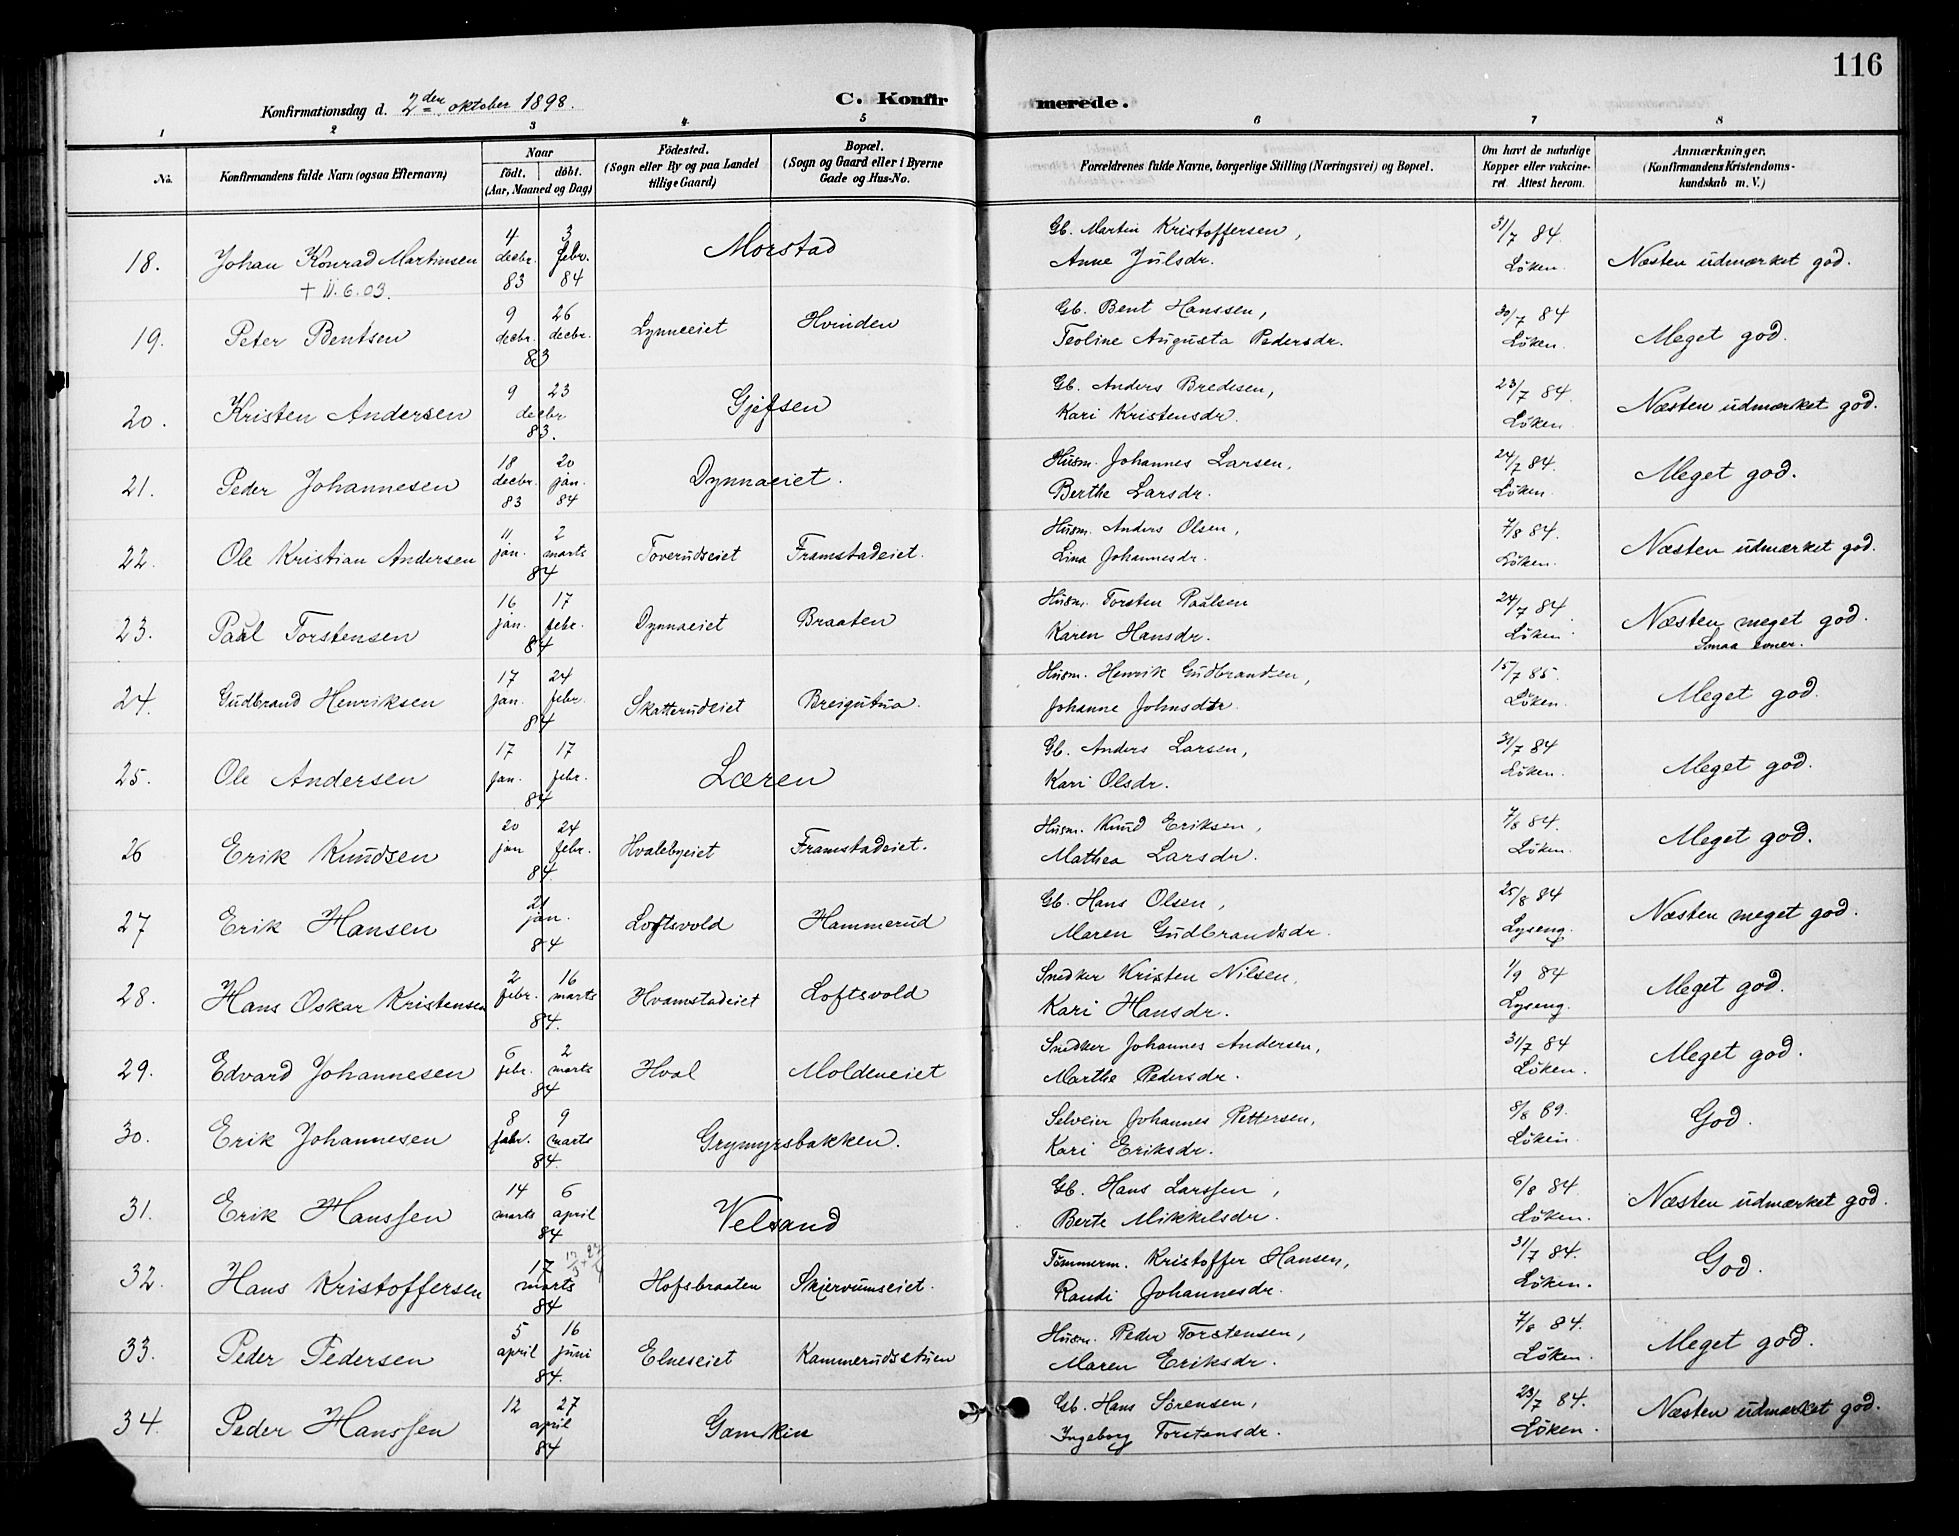 116
Konfirmationsdag d. 2den oktober 1898.
C. Konfirmerede.
1 2 3 4 5 6 7 8
No. Konfirmandens fulde Navn (ogsaa Efternavn) Naar født. døbt. (Aar, Maaned og Dag) Fødested. (Sogn eller By og paa Landet tillige Gaard) Bopæl. (Sogn og Gaard eller i Byerne Gade og Hus-No. Forældrenes fulde Navne, borgerlige Stilling (Næringsvei) og Bopæl. Om havt de naturlige Kopper eller vakcineret. Attest herom. Anmærkninger. (Konfirmandens Kristendomskundskab m. V.)
18. Johan Konrad Martinsen 4 decbr. 83 3 febr. 84 Morstad Gb. Martin Kristoffersen, Anne Julsdr. 31/7 84 Løken. Næsten udmærket god.
+ 11.6.03.
19. Peter Bentsen 9 decbr. 26 decbr. 83 Lynneeiet Hvinden Gb. Bent Hanssen, Teoline Augusta Pedersdr. 30/7 84 Løken. Meget god.
20. Kristen Andersen 9 23 decbr 83. Gjefsen Gb. Anders Bredesen, Kari Kristensdr. 23/7 84. Løken. Næsten udmærket god.
21. Peder Johannesen 18 decbr. 83 20 jan. 84 Dynnaeiet. Husm. Johannes Larsen, Berthe Larsdr. 24/7 84. Løken. Meget god.
22. Ole Kristian Andersen 11 jan. 2 marts 84 Toverudseiet Framstadeiet. Husm. Anders Olsen, Lina Johannesdr. 7/8 84. Løken. Næsten udmærket god.
23. Paul Torstensen 16 jan. 17 febr. 84 Dynnaeiet Braaten Husm. Torsten Paulsen Karen Hansdr. 24/7 84. Løken. Næsten meget god. Smaa evner.
24. Gudbrand Henriksen 17 jan. 24 febr. 84 Skatterudeiet Breigutua Husm. Henrik Gudbrandsen, Johanne Johnsdtr. 15/7 85. Løken. Meget god.
25. Ole Andersen 17 jan. 17 febr. 84 Læren Gb. Anders Larsen, Kari Olsdr. 31/7 84 Løken. Meget god.
26 Erik Knudsen 20 jan 24 febr. 84. Hvalebyeiet Framstadeiet. Husm. Knud Eriksen, Mathea Larsdr. 7/8 84. Løken. Meget god.
27 Erik Hansen 21 jan. 84 Loftsvold Hammerud Gb. Hans Olsen, Maren Gudbrandsdr. 25/8 84 Lyseng. Næsten meget god.
28. Hans Oskar Kristensen 2 febr. 16 marts 84. Hvamstadeiet Loftsvold Snedker Kristen Nilsen, Kari Hansdr. 1/9 84 Lyseng. Meget god.
29. Edvard Johannesen 6 febr. 2 marts 84 Hval Moldeneiet Snedker Johannes Andersen, Marthe Pedersdr. 31/7 84 Løken. Meget god.
30. Erik Johannesen 8 febr. 9 marts 84. Grymyrsbakken. Selveier Johannes Pettersen, Kari Eriksdr. 8/8 89. Løken. God.
31. Erik Hanssen 14 marts 6 april 84 Velsand Gb. Hans Larssen, Berte Mikkelsdr. 6/8 84. Løken. Næsten udmærket god.
32. Hans Kristoffersen 17 marts 84 Hofsbraaten Skjervumseiet. Tømmerm. Kristoffer Hansen, Randi Johannesdr. 31/7 84. Løken. God.
33. Peder Pedersen 5 april 16 juni 84. Elneseiet Kammerudsstuen Husm. Peder Torstensen, Maren Eriksdr. 7/8 84. Løken. Meget god.
34. Peder Hanssen 12 27 april 84 Gamkin Gb. Hans Sørensen, Ingeborg Torstensdr. 23/7 84. Løken. Næsten udmærket god.